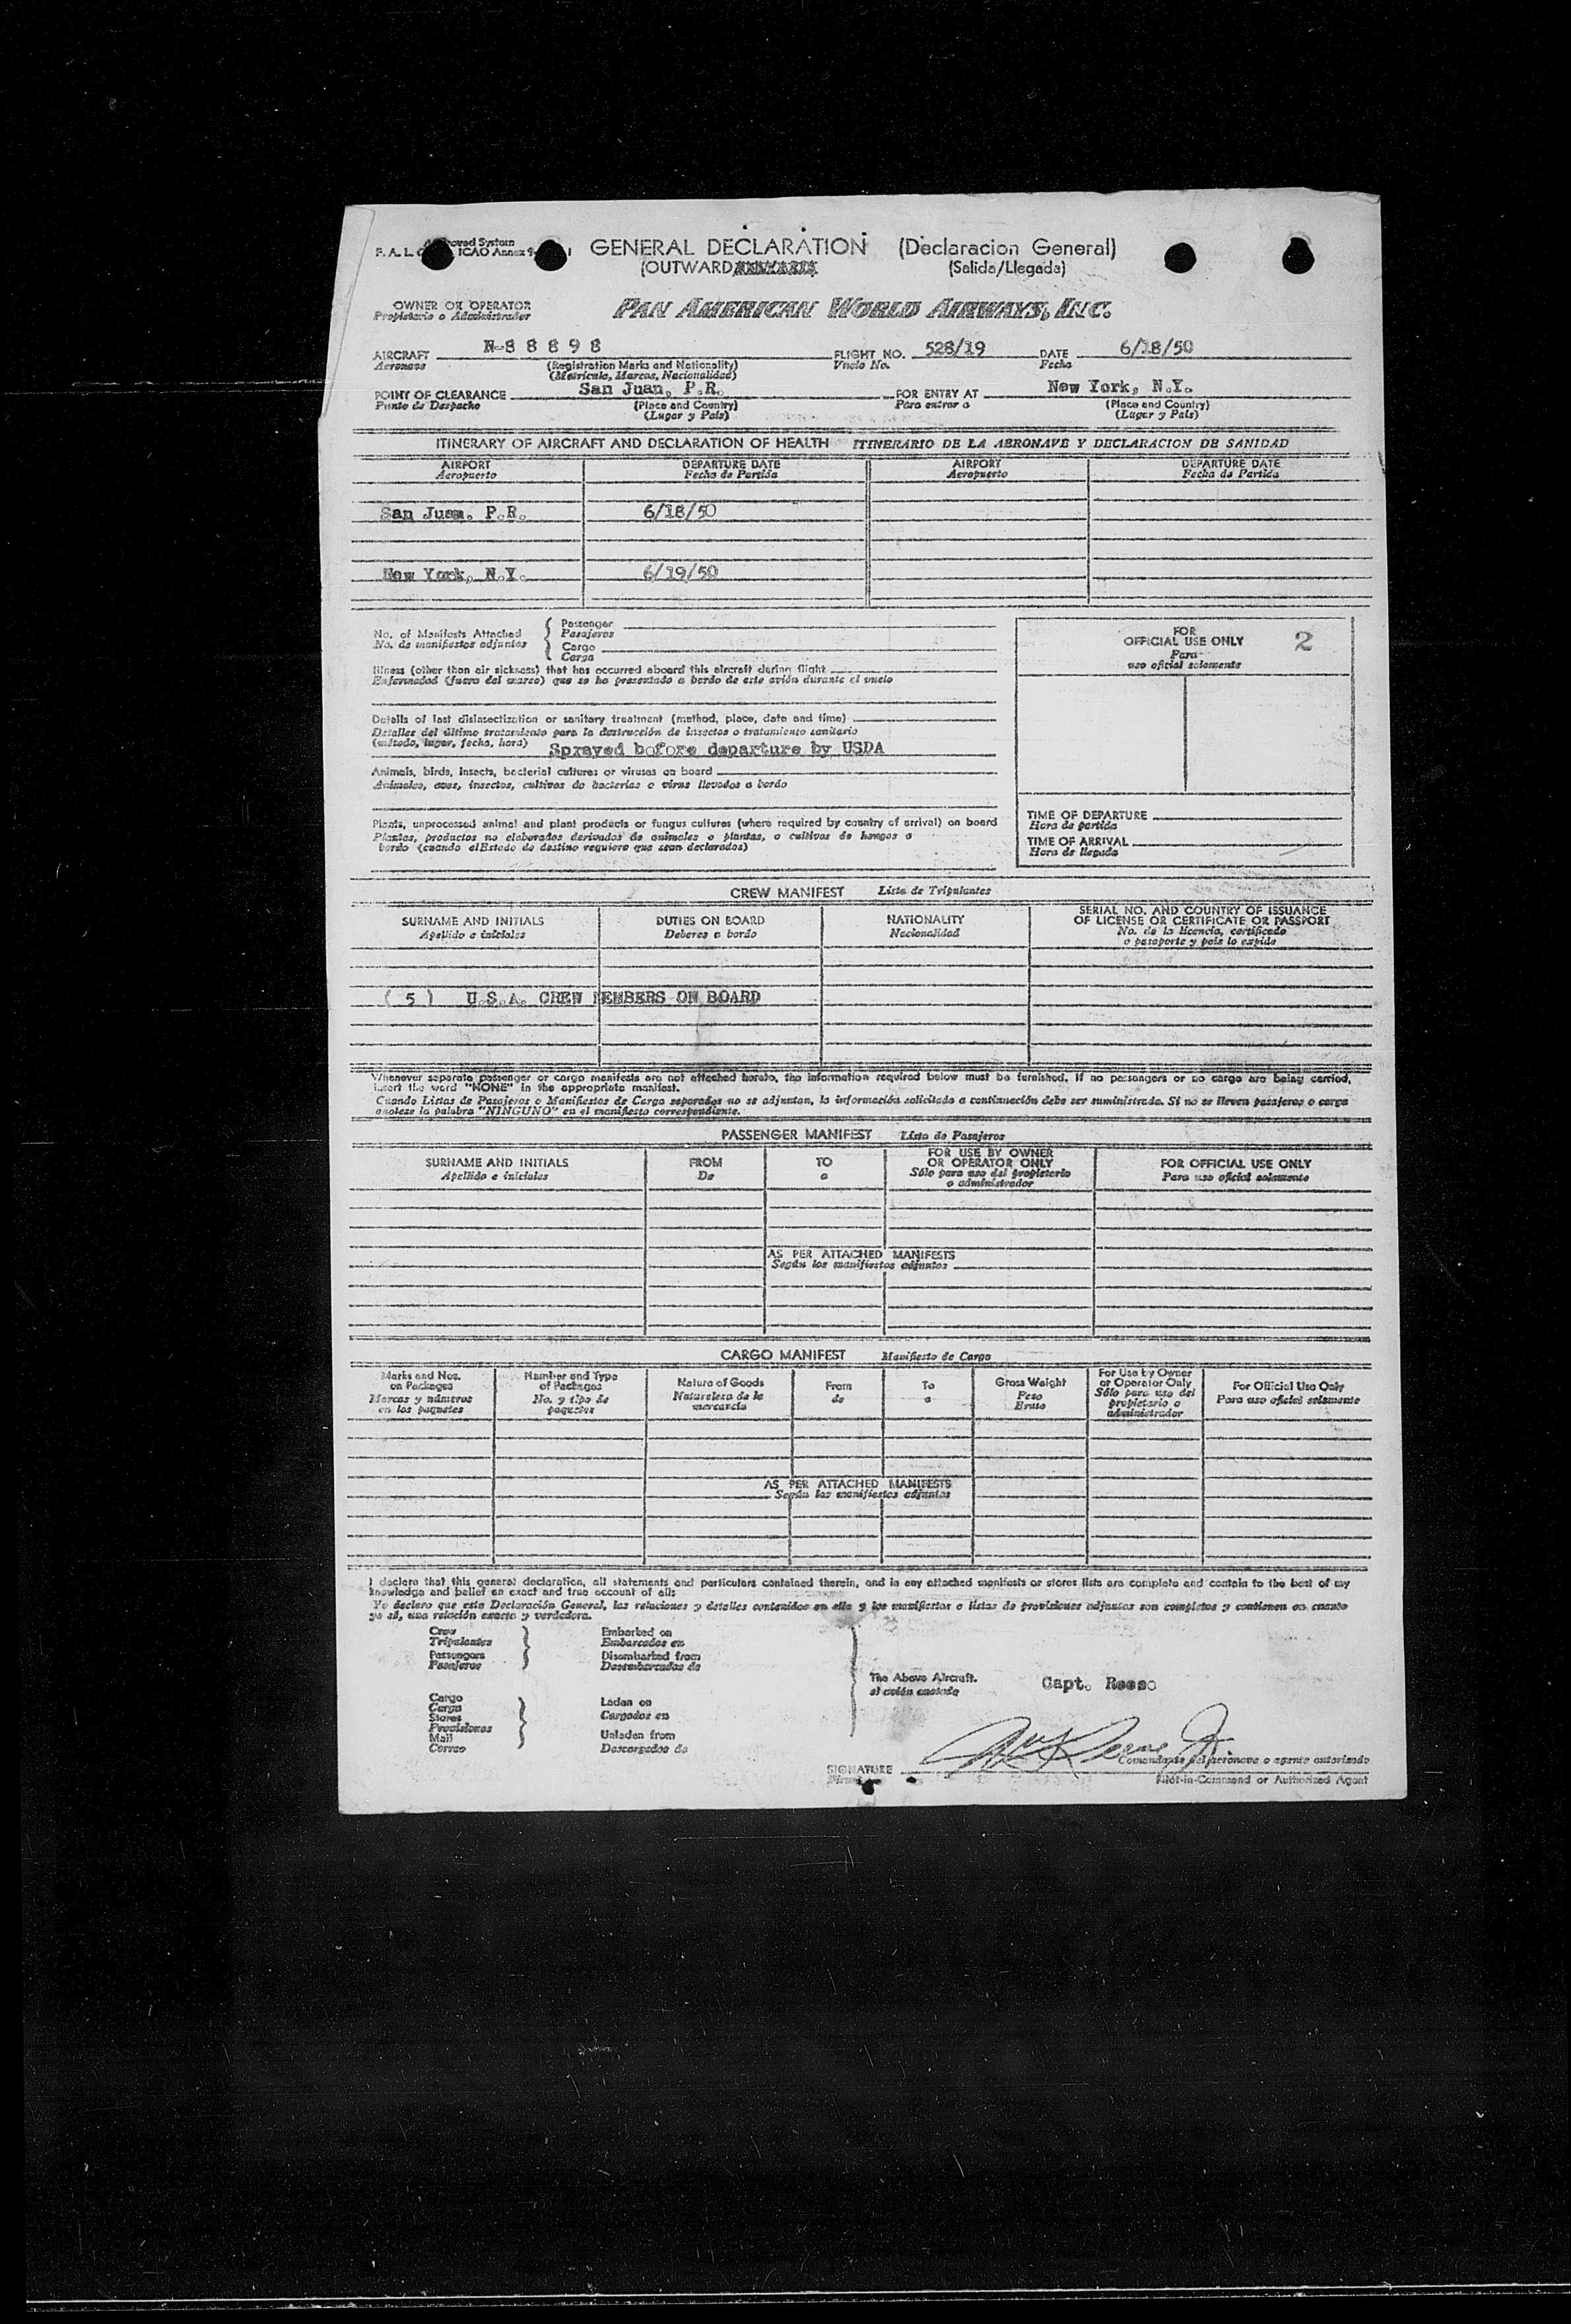 GENERAL DECLARATION (Declaracion General)
(OUTWARD (Salida/Llegada)
OWNER OR OPERATOR
Propietario o Administrador
PAN AMERICAN WORLD AIRWAYS, INC.
AIRCRAFT N-88898 FLIGHT NO. 528/19 DATE 6/18/50
Aeronave (Registration Marks and Nationality) Vuelo No. Fecha
(Matricula, Marcas, Nacionalidad)
POINT OF CLEARANCE San Juan, P.R. FOR ENTRY AT New York, N.Y.
Punto de Despacho (Place and Country) Para entrar a (Place and Country)
(Lugar y País) (Lugar y País)
ITINERARY OF AIRCRAFT AND DECLARATION OF HEALTH ITINERARIO DE LA AERONAVE Y DECLARACION DE SANIDAD
AIRPORT DEPARTURE DATE AIRPORT DEPARTURE DATE
Aeropuerto Fecha de Partida Aeropuerto Fecha de Partida
San Juan, P.R. 6/18/50
New York, N.Y. 6/19/50
No. of Manifests Attached
No. de manifiestos adjuntos
Passenger
Pasajeros
Cargo
Carga
FOR
OFFICIAL USE ONLY 2
Para
uso oficial solamente
Illness (other than air sickness) that has occurred aboard this aircraft during flight
Enfermedad (fuera del mareo) que se ha presentado a bordo de este avión durante el vuelo
Details of last disinsectization or sanitary treatment (method, place, date and time)
Detalles del último tratamiento para la destrucción de insectos o tratamiento sanitario
(método, lugar, fecha, hora) Sprayed before departure by USDA
Animals, birds, insects, bacterial cultures or viruses on board
Animales, aves, insectos, cultivos de bacterias o virus llevados a bordo
Plants, unprocessed animal and plant products or fungus cultures (where required by country of arrival) on board
Plantas, productos no elaborados derivados de animales o plantas, o cultivos de hongos a
bordo (cuando el Estado de destino requiere que sean declarados)
TIME OF DEPARTURE
Hora de partida
TIME OF ARRIVAL
Hora de llegada
CREW MANIFEST Lista de Tripulantes
SURNAME AND INITIALS DUTIES ON BOARD NATIONALITY SERIAL NO. AND COUNTRY OF ISSUANCE
OF LICENSE OR CERTIFICATE OR PASSPORT
Apellido e iniciales Deberes a bordo Nacionalidad No. de la licencia, certificado
o pasaporte y país lo expide
( 5 ) U.S.A. CREW MEMBERS ON BOARD
Whenever separate passenger or cargo manifests are not attached hereto, the information required below must be furnished. If no passengers or no cargo are being carried,
insert the word "NONE" in the appropriate manifest.
Cuando Listas de Pasajeros o Manifiestos de Carga separados no se adjuntan, la información solicitada a continuación debe ser suministrada. Si no se lleven pasajeros o carga
anotese la palabra "NINGUNO" en el manifiesto correspondiente.
PASSENGER MANIFEST Lista de Pasajeros
SURNAME AND INITIALS FROM TO FOR USE BY OWNER
OR OPERATOR ONLY FOR OFFICIAL USE ONLY
Apellido e iniciales De a Sólo para uso del propietario
o administrador Para uso oficial solamente
AS PER ATTACHED MANIFESTS
Según los manifiestos adjuntos
CARGO MANIFEST Manifiesto de Carga
Marks and Nos.
on Packages
Marcas y números
en los paquetes
Number and Type
of Packages
No. y tipo de
paquetes
Nature of Goods
Naturaleza de la
mercancía
From
de
To
a
Gross Weight
Peso
Bruto
For Use by Owner
or Operator Only
Sólo para uso del
propietario o
administrador
For Official Use Only
Para uso oficial solamente
AS PER ATTACHED MANIFESTS
Según los manifiestos adjuntos
I declare that this general declaration, all statements and particulars contained therein, and in any attached manifests or stores lists are complete and contain to the best of my
knowledge and belief an exact and true account of all:
Yo declaro que esta Declaración General, las relaciones y detalles contenidos en ella y los manifiestos o listas de provisiones adjuntos son completos y contienen en cuanto
yo sé, una relación exacta y verdadera.
Crew
Tripulantes
Passengers
Pasajeros
Embarked on
Embarcados en
Disembarked from
Desembarcados de
Cargo
Carga
Stores
Provisiones
Mail
Correo
Laden on
Cargados en
Unladen from
Descargados de
The Above Aircraft.
el avión anotado
Capt. Reese
Comandante del aeronave o agente autorizado
SIGNATURE
Pilot-in-Command or Authorized Agent